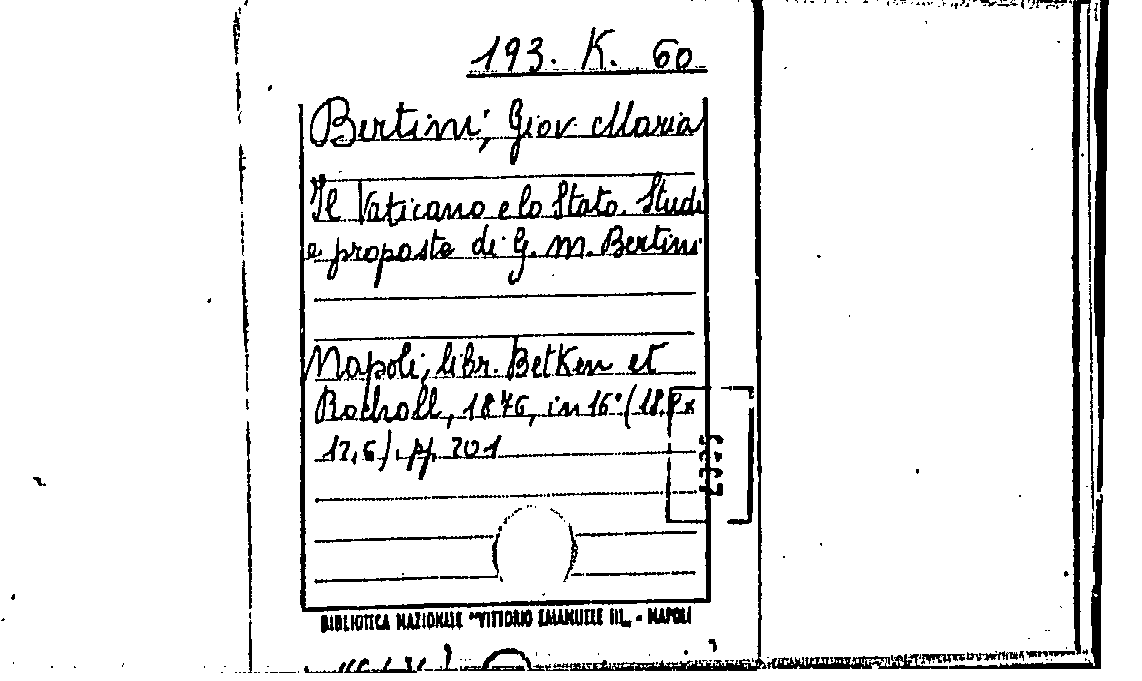 193. K. 60
Bertini, Giov Maria
Il Vaticano e lo Stato. Studi
e proposte di G. M. Bertini
Napoli, libr. Betken et
Rocholl, 1876, in 16° (18,8x
12,6). pp. 201
BIBLIOTECA NAZIONALE "VITTORIO EMANUELE III„ - NAPOLI